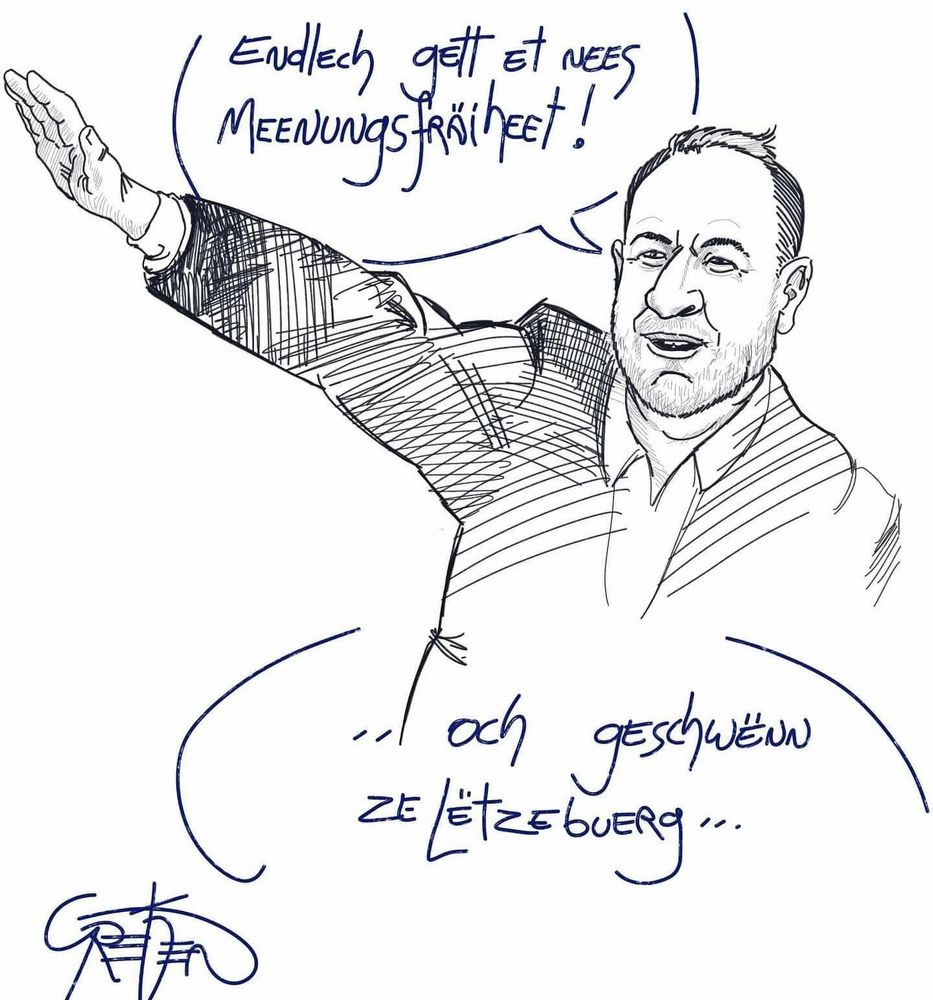 Endlech gëtt et nees
Meenungsfräiheet!
.. och geschwënn
ze Lëtzebuerg...